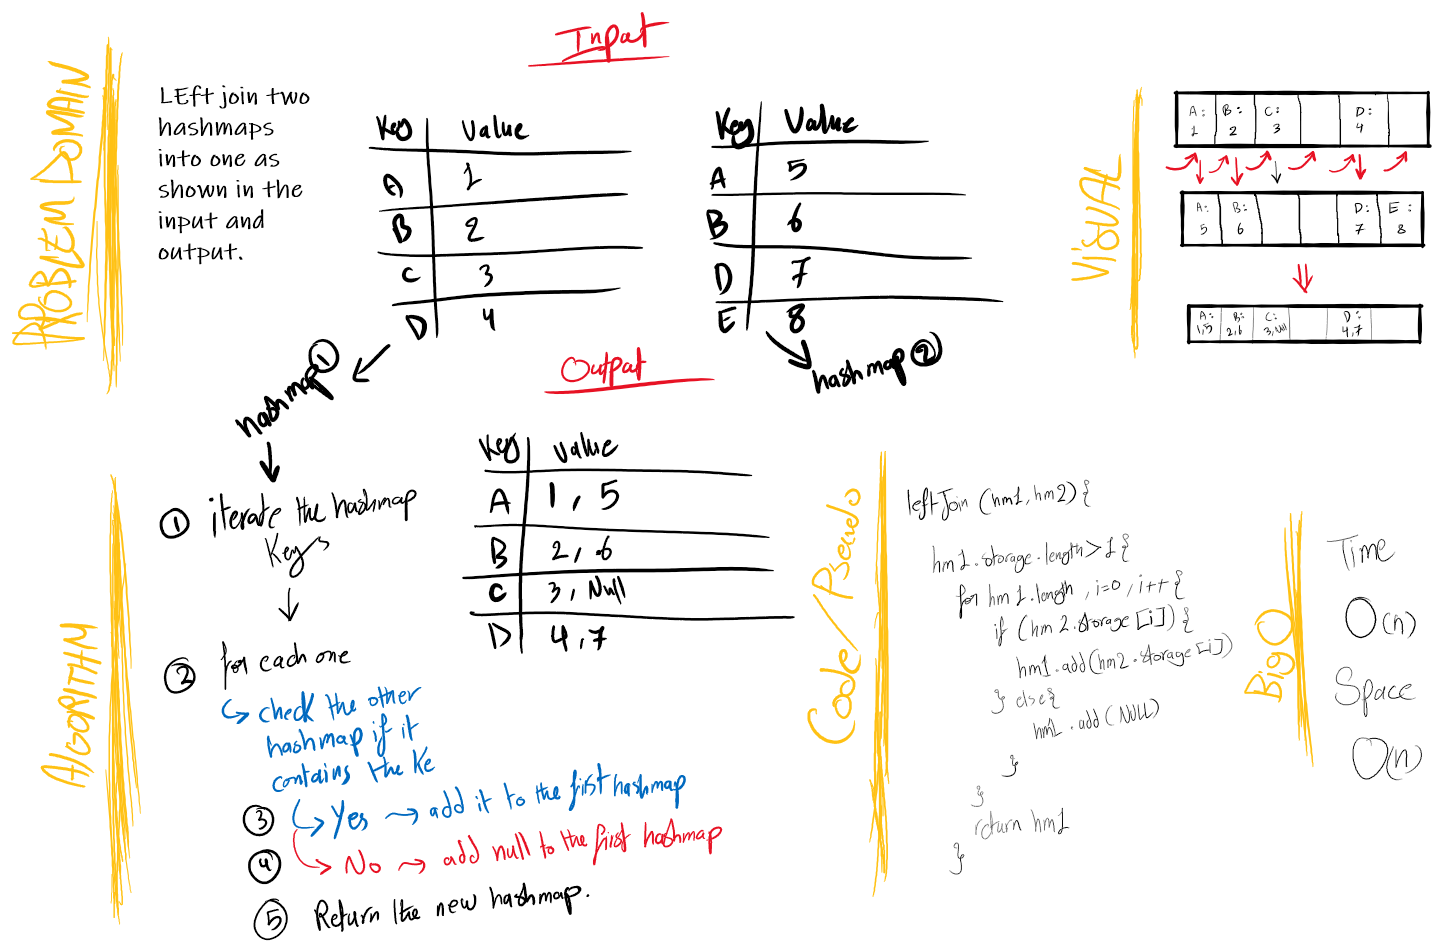 PROBLEM DOMAIN
LEft join two
hashmaps
into one as
shown in the
input and
output.
Input
Key Value
A 1
B 2
C 3
D 4
hashmap 1
Key Value
A 5
B 6
D 7
E 8
hashmap 2
Output
Key Value
A 1, 5
B 2, 6
C 3, Null
D 4,7
VISUAL
A: B: C: D:
1 2 3 4
A: B: D: E:
5 6 7 8
A: B: C: D:
1,5 2,6 3,Null 4,7
ALGORITHM
1 iterate the hashmap
Keys
2 for each one
check the other
hashmap if it
contains the Ke
3 Yes → add it to the first hashmap
4 No → add null to the first hashmap
5 Return the new hashmap.
Code/Pseudo
leftJoin (hm1, hm2) {
hm1.storage.length>1{
for hm1.length, i=0, i++ {
if (hm2.storage[i]) {
hm1.add(hm2.storage[i])
} else{
hm1.add(NULL)
}
}
return hm1
}
Big O
Time
O(n)
Space
O(n)